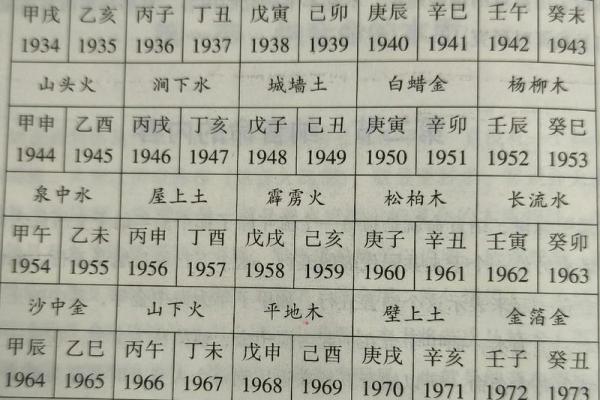 甲戌 乙亥 丙子 丁丑 戊寅 己卯 庚辰 辛巳 壬午 癸未
1934 1935 1936 1937 1938 1939 1940 1941 1942 1943
山头火 涧下水 城墙土 白蜡金 杨柳木
甲申 乙酉 丙戌 丁亥 戊子 己丑 庚寅 辛卯 壬辰 癸巳
1944 1945 1946 1947 1948 1949 1950 1951 1952 1953
泉中水 屋上土 霹雳火 松柏木 长流水
甲午 乙未 丙申 丁酉 戊戌 己亥 庚子 辛丑 壬寅 癸卯
1954 1955 1956 1957 1958 1959 1960 1961 1962 1963
沙中金 山下火 平地木 壁上土 金箔金
甲辰 乙巳 丙午 丁未 戊申 己酉 庚戌 辛亥 壬子 癸丑
1964 1965 1966 1967 1968 1969 1970 1971 1972 1973